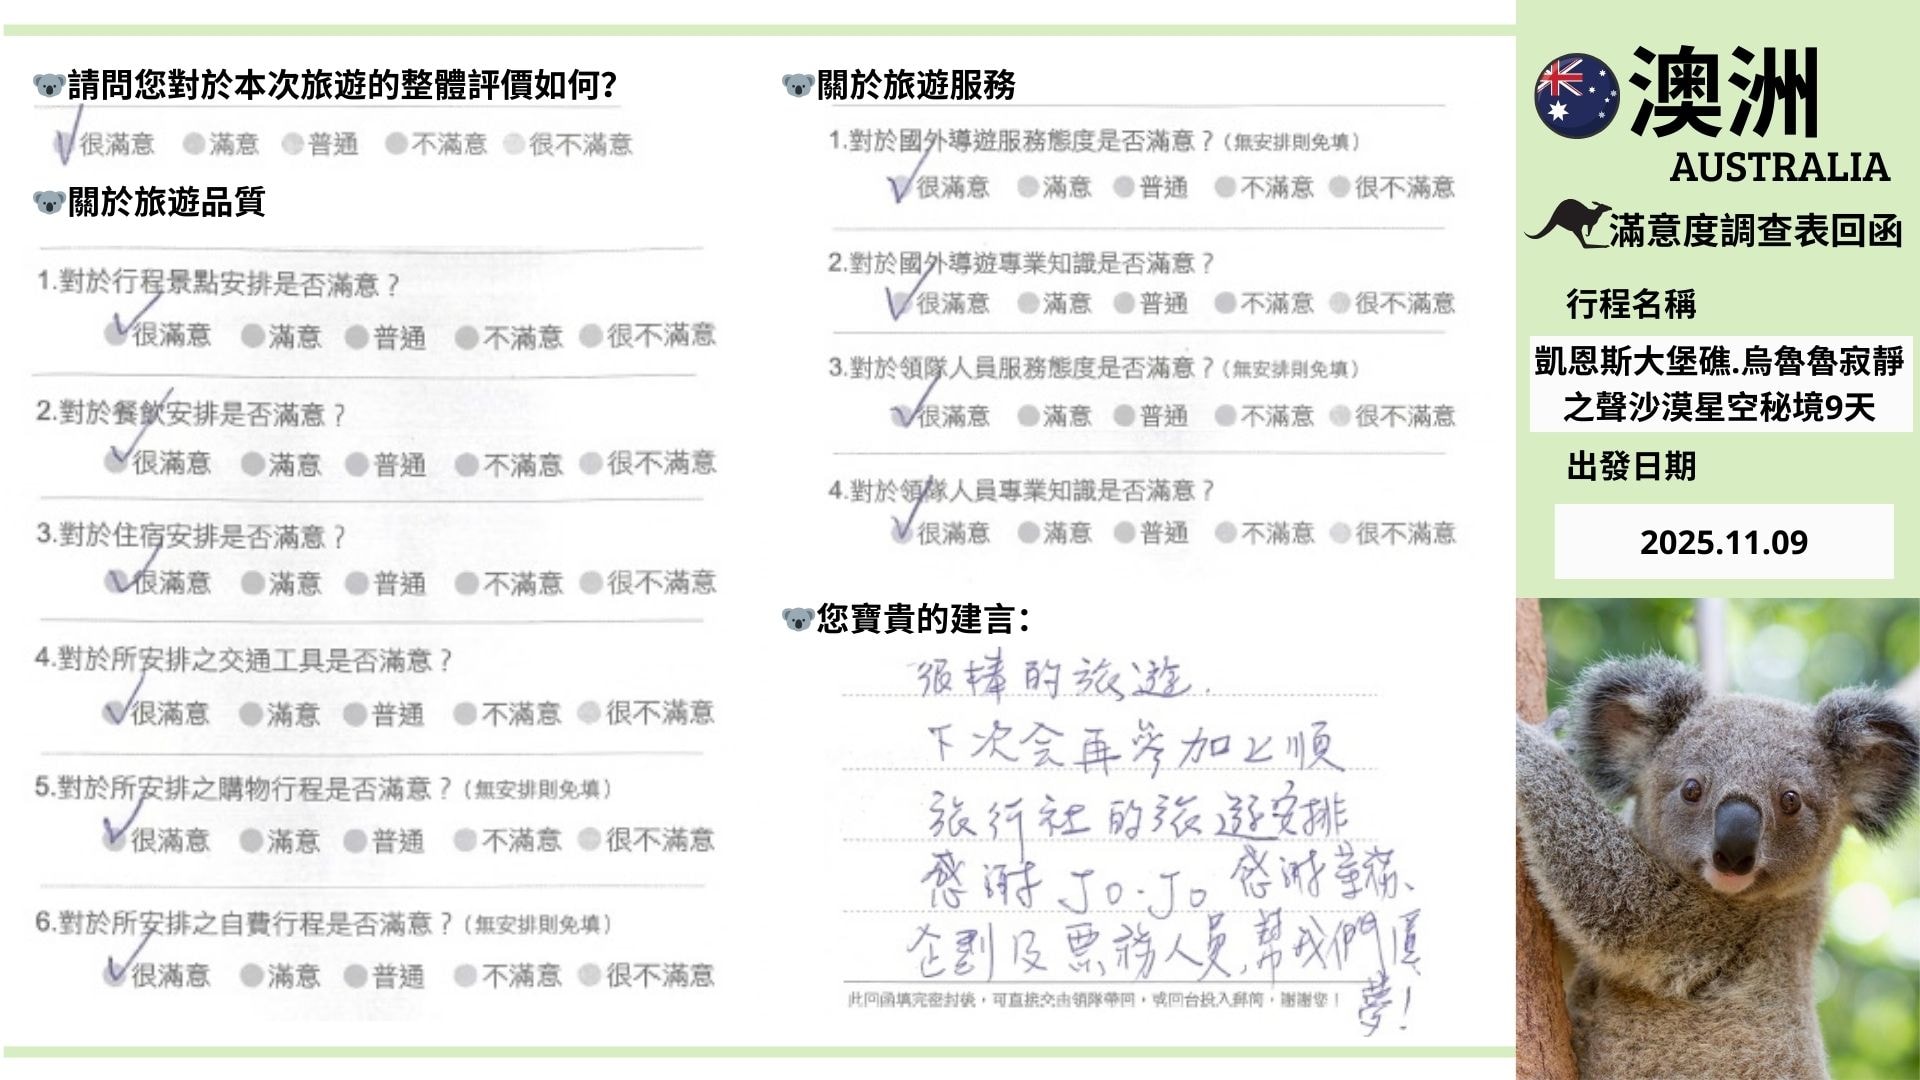 請問您對於本次旅遊的整體評價如何?
很滿意 滿意 普通 不滿意 很不滿意
關於旅遊品質
1.對於行程景點安排是否滿意？
很滿意 滿意 普通 不滿意 很不滿意
2.對於餐飲安排是否滿意？
很滿意 滿意 普通 不滿意 很不滿意
3.對於住宿安排是否滿意？
很滿意 滿意 普通 不滿意 很不滿意
4.對於所安排之交通工具是否滿意？
很滿意 滿意 普通 不滿意 很不滿意
5.對於所安排之購物行程是否滿意？(無安排則免填)
很滿意 滿意 普通 不滿意 很不滿意
6.對於所安排之自費行程是否滿意？(無安排則免填)
很滿意 滿意 普通 不滿意 很不滿意
關於旅遊服務
1.對於國外導遊服務態度是否滿意？(無安排則免填)
很滿意 滿意 普通 不滿意 很不滿意
2.對於國外導遊專業知識是否滿意？
很滿意 滿意 普通 不滿意 很不滿意
3.對於領隊人員服務態度是否滿意？(無安排則免填)
很滿意 滿意 普通 不滿意 很不滿意
4.對於領隊人員專業知識是否滿意？
很滿意 滿意 普通 不滿意 很不滿意
您寶貴的建言：
很棒的旅遊.
下次会再參加上順
旅行社的旅遊安排
感謝 Jo.Jo 感謝業務、
企劃及票務人員,幫我們圓
夢!
此回函填完密封後，可直接交由領隊帶回，或回台投入郵筒，謝謝您！
澳洲
AUSTRALIA
滿意度調查表回函
行程名稱
凱恩斯大堡礁.烏魯魯寂靜
之聲沙漠星空秘境9天
出發日期
2025.11.09